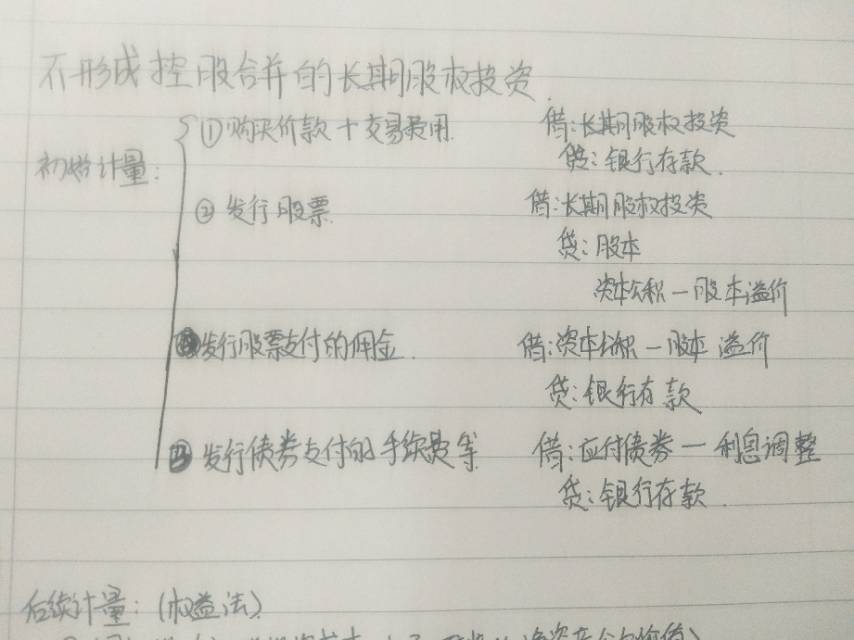 不形成控股合并的长期股权投资.
初始计量:
①购买价款+交易费用. 借:长期股权投资
贷:银行存款.
②发行股票. 借:长期股权投资
贷:股本
资本公积—股本溢价
发行股票支付的佣金. 借:资本公积—股本溢价
贷:银行存款
发行债券支付的手续费等. 借:应付债券—利息调整
贷:银行存款.
后续计量:(权益法)